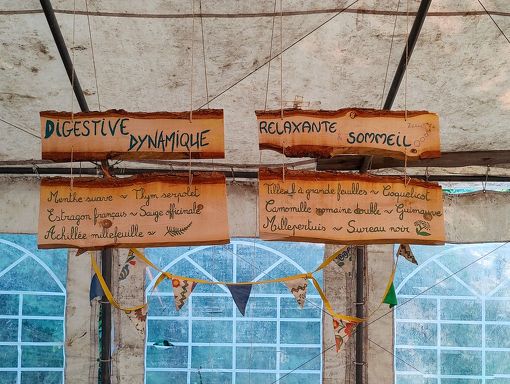 DIGESTIVE
DYNAMIQUE
Menthe suave ~ Thym serpolet
Estragon français ~ Sauge officinale
Achillée millefeuille ~
RELAXANTE
SOMMEIL
Tilleul à grande feuilles ~ Coquelicot
Camomille romaine double ~ Guimauve
Millepertuis ~ Sureau noir